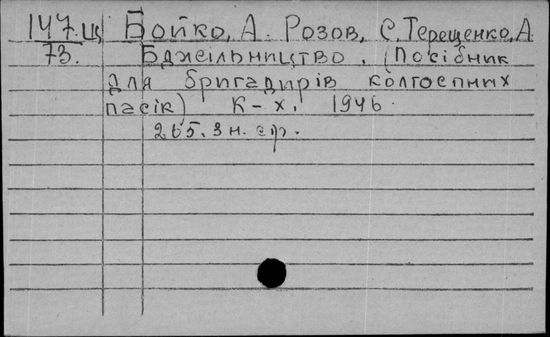 147.Ц Бойко, А. Розов, С. Терещенко, А
73. Бджільництво. (Посібник
для бригадирів колгоспних
пасік) К-х. 1946.
265. З н. ср.